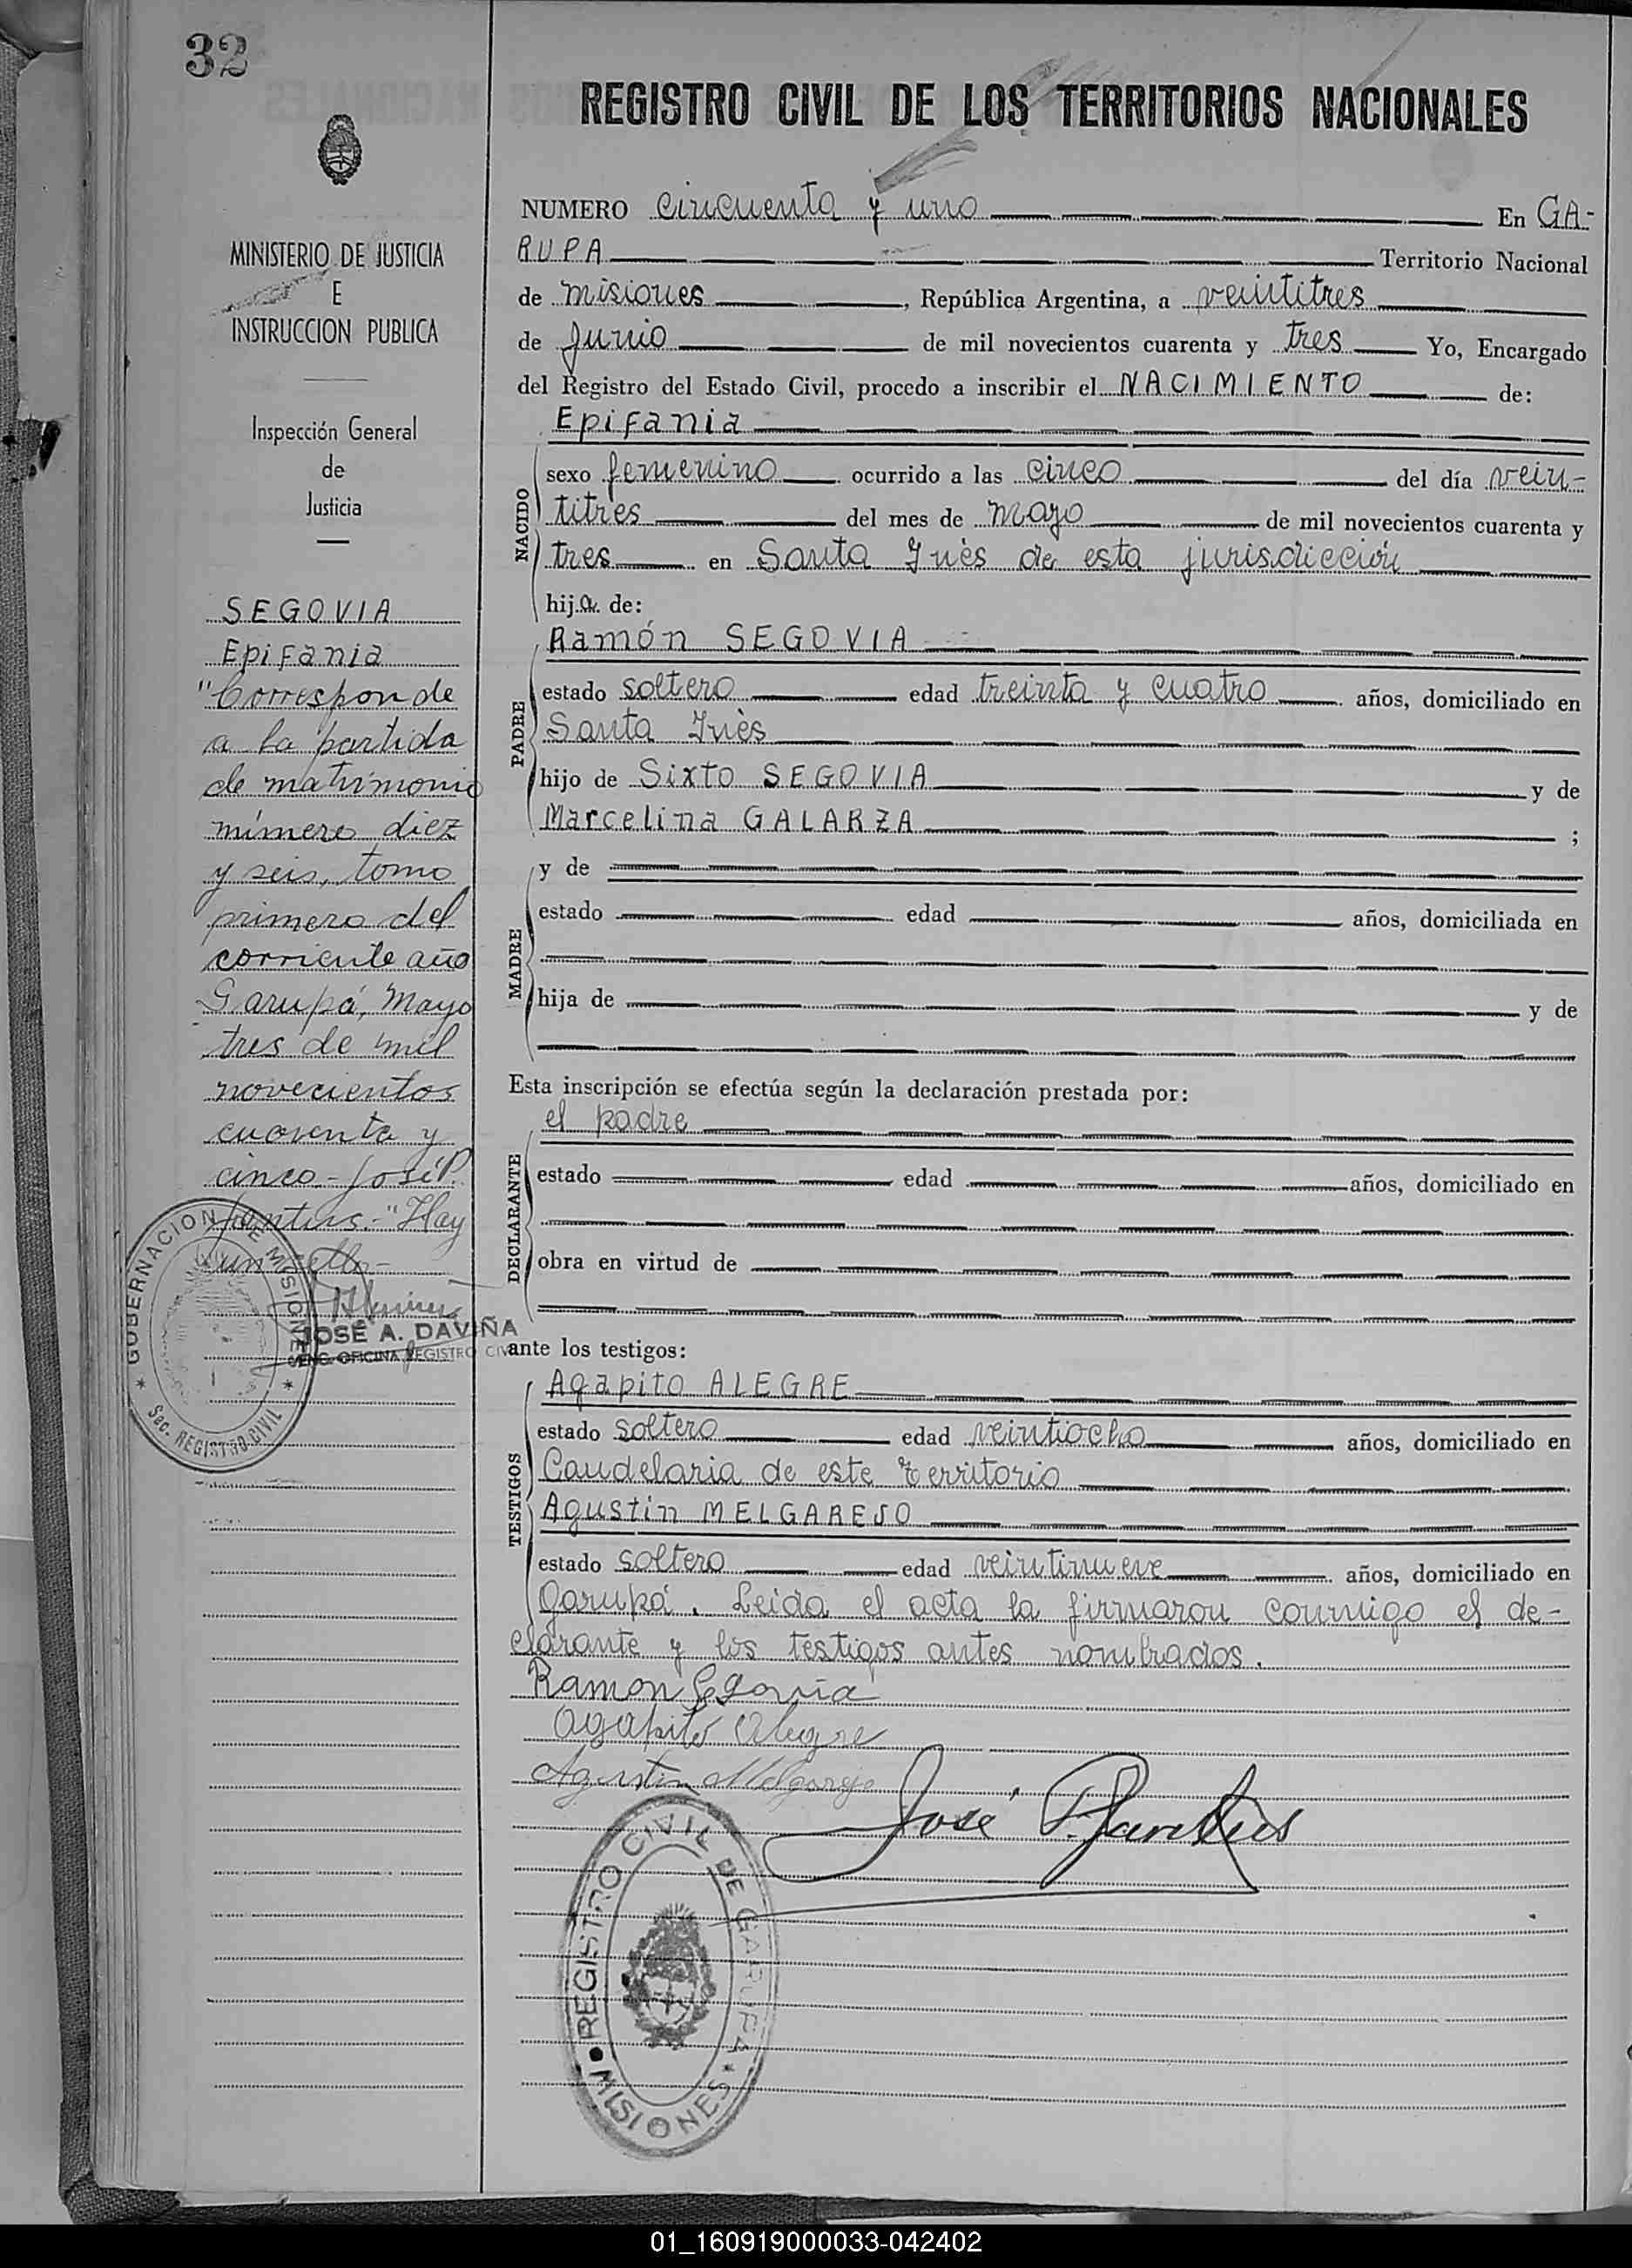 32
MINISTERIO DE JUSTICIA
E
INSTRUCCION PUBLICA
Inspección General
de
Justicia
SEGOVIA
Epifania
"Corresponde
a la partida
de matrimonio
número diez
y seis, tomo
primero del
corriente año
Garupá, Mayo
tres de mil
novecientos
cuarenta y
cinco.- José P.
"Hay
un sello-
GOBERNACION DE MISIONES
Sec. REGISTRO CIVIL
JOSÉ A. DAVIÑA
ENC. OFICINA REGISTRO CIV
REGISTRO CIVIL DE LOS TERRITORIOS NACIONALES
NUMERO cincuenta y uno En GA-
RUPA Territorio Nacional
de misiones, República Argentina, a veintitres
de Junio de mil novecientos cuarenta y tres Yo, Encargado
del Registro del Estado Civil, procedo a inscribir el NACIMIENTO de:
Epifania
NACIDO
sexo femenino ocurrido a las cinco del día vein-
titres del mes de mayo de mil novecientos cuarenta y
tres en Santa Inès de esta jurisdicción
hija de:
PADRE
Ramón SEGOVIA
estado soltero edad treinta y cuatro años, domiciliado en
Santa Inès
hijo de Sixto SEGOVIA y de
Marcelina GALARZA ;
MADRE
y de
estado edad años, domiciliada en
hija de y de
Esta inscripción se efectúa según la declaración prestada por:
DECLARANTE
el padre
estado edad años, domiciliado en
obra en virtud de
ante los testigos:
TESTIGOS
Agapito ALEGRE
estado soltero edad veintiocho años, domiciliado en
Candelaria de este territorio
Agustin MELGAREJO
estado soltero edad veintinueve años, domiciliado en
Garupá. Leida el acta la firmaron conmigo el de-
clarante y los testigos antes nombrados.
Ramon Segovia
Agapito Alegre
Agustin Melgarejo
José P.
REGISTRO CIVIL DE GARUPA
MISIONES
01_160919000033-042402